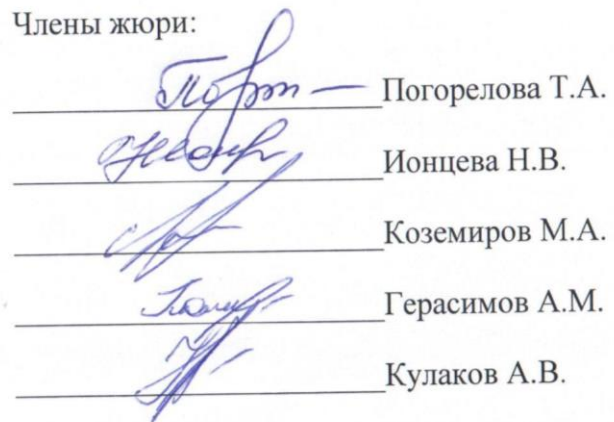 Члены жюри:
Погорелова Т.А.
Ионцева Н.В.
Коземиров М.А.
Герасимов А.М.
Кулаков А.В.